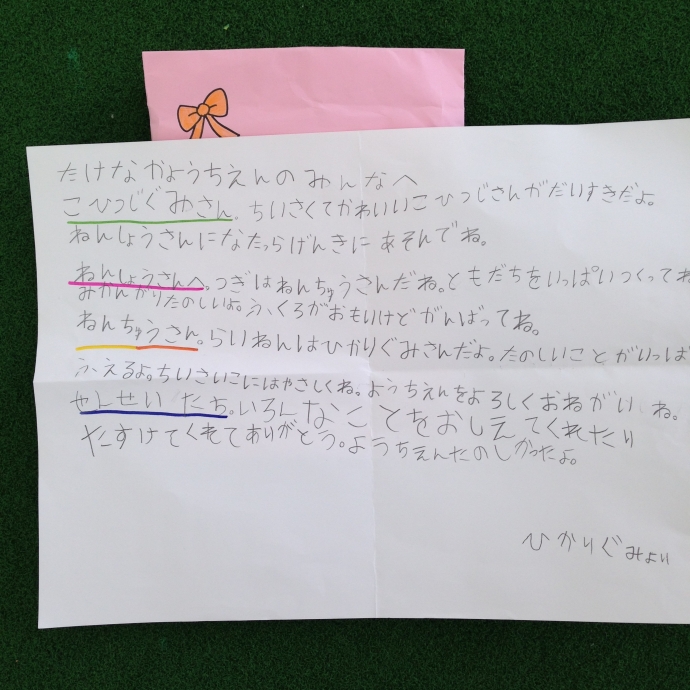 たけなかようちえんのみんなへ
こひつじぐみさん。ちいさくてかわいいこひつじさんがだいすきだよ。
ねんしょうさんになたっらげんきにあそんでね。
ねんしょうさんへ。つぎはねんちゅうさんだね。ともだちをいっぱいつくってね
みかんがりたのしいよ。ふくろがおもいけどがんばってね。
ねんちゅうさん。らいねんはひかりぐみさんだよ。たのしいことがいっぱ
ふえるよ。ちいさいこにはやさしくね。ようちえんをよろしくおねがいね。
せいたち。いろんなことをおしえてくれたり
たすけてくれてありがとう。ようちえんたのしかったよ。
ひかりぐみより